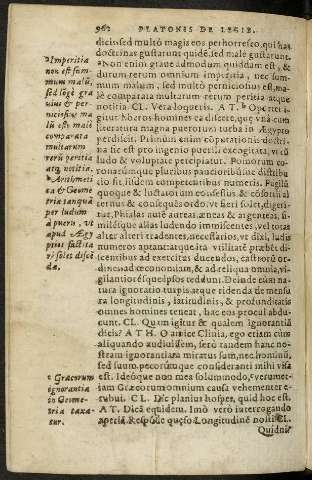 962 PLATONIS DE LEGIB.
dicis: sed multò magis eos perhorresco, qui has
doctrinas gustarunt quidē, sed malè gustarunt.
Non enim graue admodum quiddam est, &
durum rerum omnium imperitia, nec sum-
mum malum, sed multò perniciosius est, ma-
lè comparata multarum rerum peritia atque
notitia. CL. Vera loqueris. AT. Oportet i-
gitur liberos homines ea discere, quæ vnà cum
literatura magna puerorum turba in Ægypto
perdiscit. Primùm enim computationis doctri-
na sic est pro ingenio puerili excogitata, vt cū
ludo & voluptate percipiatur. Pomorum co-
ronarúmque pluribus paucioribúsque distribu
tio fit, iisdem competentibus numeris. Pugilū
quoque & luctatorum consessus & consortium al
ternus & consequés ordo, vt fieri solet, digeri-
tur. Phialas autē aureas, æneas & argenteas, si-
milésque alias ludendo immiscentes, vel totas
alteri tradentes, necessarios, vt dixi, ludis
numeros aptant: atque ita vtilitatē præbēt di-
scentibus ad exercitus ducendos, castrorū or-
dines: ad œconomiam, & ad reliqua omnia, vi-
gilantiorésque ipsos reddunt. Deinde eum na-
tura ignoratio turpis atque ridenda de mensu
ra longitudinis, latitudinis, & profunditatis
omnes homines teneat, hac eos procul abdu-
cunt. CL. Quam igitur & qualem ignorantiā
dicis? ATH. O amice Clinia, ego etiam cùm
aliquando audiuissem, serò tandem hanc no-
stram ignorantiam miratus sum, nec hominū,
sed suum pecorúmque considerati mihi visa
est. Ideóque non mea solùm modo, verumet-
iam Græcorum omnium causa vehementer e-
rubui. CL. Dic planius hospes, quid hoc est.
AT. Dicā equidem. Imò verò interrogando
aperiā. Respōde quęso. Longitudinē nosti? CL.
Quidni?
Imperitia
non est sum-
mum malū,
sed lōgè gra
uius & per-
niciosius ma
lū est malè
comparata
multarum
rerū peritia
atq; notitia.
Arithmeti
ca & Geome
tria tanquā
per ludum
à pueris, vt
apud Ægy
ptios factita
ri solet discē
dæ.
Græcorum
ignorantia
in Geome-
tria taxa-
tur.